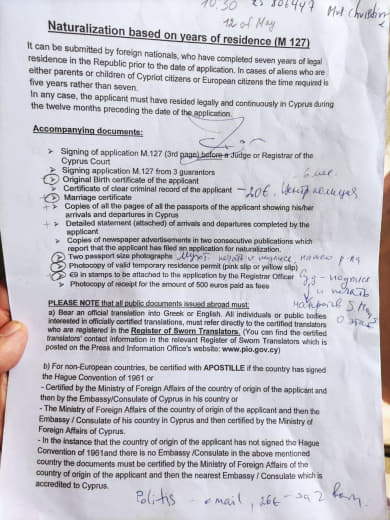 10.30 25 806447
12 of May
Naturalization based on years of residence (M 127)
It can be submitted by foreign nationals, who have completed seven years of legal
residence in the Republic prior to the date of application. In cases of aliens who are
either parents or children of Cypriot citizens or European citizens the time required is
five years rather than seven.
In any case, the applicant must have resided legally and continuously in Cyprus during
the twelve months preceding the date of the application.
Accompanying documents:
➢ Signing of application M.127 (3rd page) before a Judge or Registrar of the
Cyprus Court
➢ Signing application M.127 from 3 guarantors
➢ Original Birth certificate of the applicant
➢ Certificate of clear criminal record of the applicant – 20€.
➢ Marriage certificate
➢ Copies of all the pages of all the passports of the applicant showing his/her
arrivals and departures in Cyprus
➢ Detailed statement (attached) of arrivals and departures completed by the
applicant
➢ Copies of newspaper advertisements in two consecutive publications which
report that the applicant has filed an application for naturalization.
➢ Two passport size photographs
➢ Photocopy of valid temporary residence permit (pink slip or yellow slip)
➢ €9 in stamps to be attached to the application by the Registrar Officer
➢ Photocopy of receipt for the amount of 500 euros paid as fees
PLEASE NOTE that all public documents issued abroad must:
a) Bear an official translation into Greek or English. All individuals or public bodies
interested in officially certified translations, must refer directly to the certified translators
who are registered in the Register of Sworn Translators. (You can find the certified
translators' contact information in the relevant Register of Sworn Translators which is
posted on the Press and Information Office's website: www.pio.gov.cy)
b) For non-European countries, be certified with APOSTILLE if the country has signed
the Hague Convention of 1961 or
- Certified by the Ministry of Foreign Affairs of the country of origin of the applicant and
then by the Embassy/Consulate of Cyprus in his country or
- The Ministry of Foreign Affairs of the country of origin of the applicant and then the
Embassy / Consulate of his country in Cyprus and then certified by the Ministry of
Foreign Affairs of Cyprus.
- In the instance that the country of origin of the applicant has not signed the Hague
Convention of 1961and there is no Embassy /Consulate in the above mentioned
country the documents must be certified by the Ministry of Foreign Affairs of the
country of origin of the applicant and then the nearest Embassy / Consulate which is
accredited to Cyprus.
Politis - email, 26€ - за 2